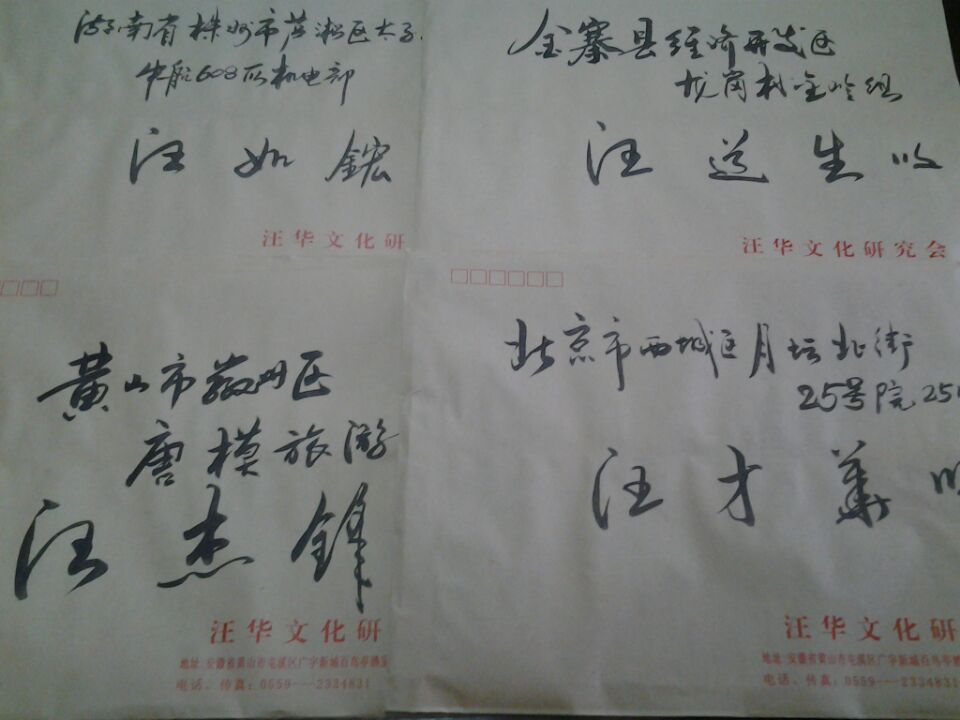 湖南省株洲市芦淞区太子
中航608所机电部
汪如鋐
汪华文化研
金寨县经济开发区
找岗村金岭组
汪送生收
汪华文化研究会
黄山市徽州区
唐模旅游
汪杰锋
汪华文化研
地址:安徽省黄山市屯溪区广宇新城百鸟亭
电话、传真:0559---2334831
北京市西城区月坛北街
25号院25
汪才华收
汪华文化研
地址:安徽省黄山市屯溪区广宇新城百鸟亭
电话、传真:0559---2334831